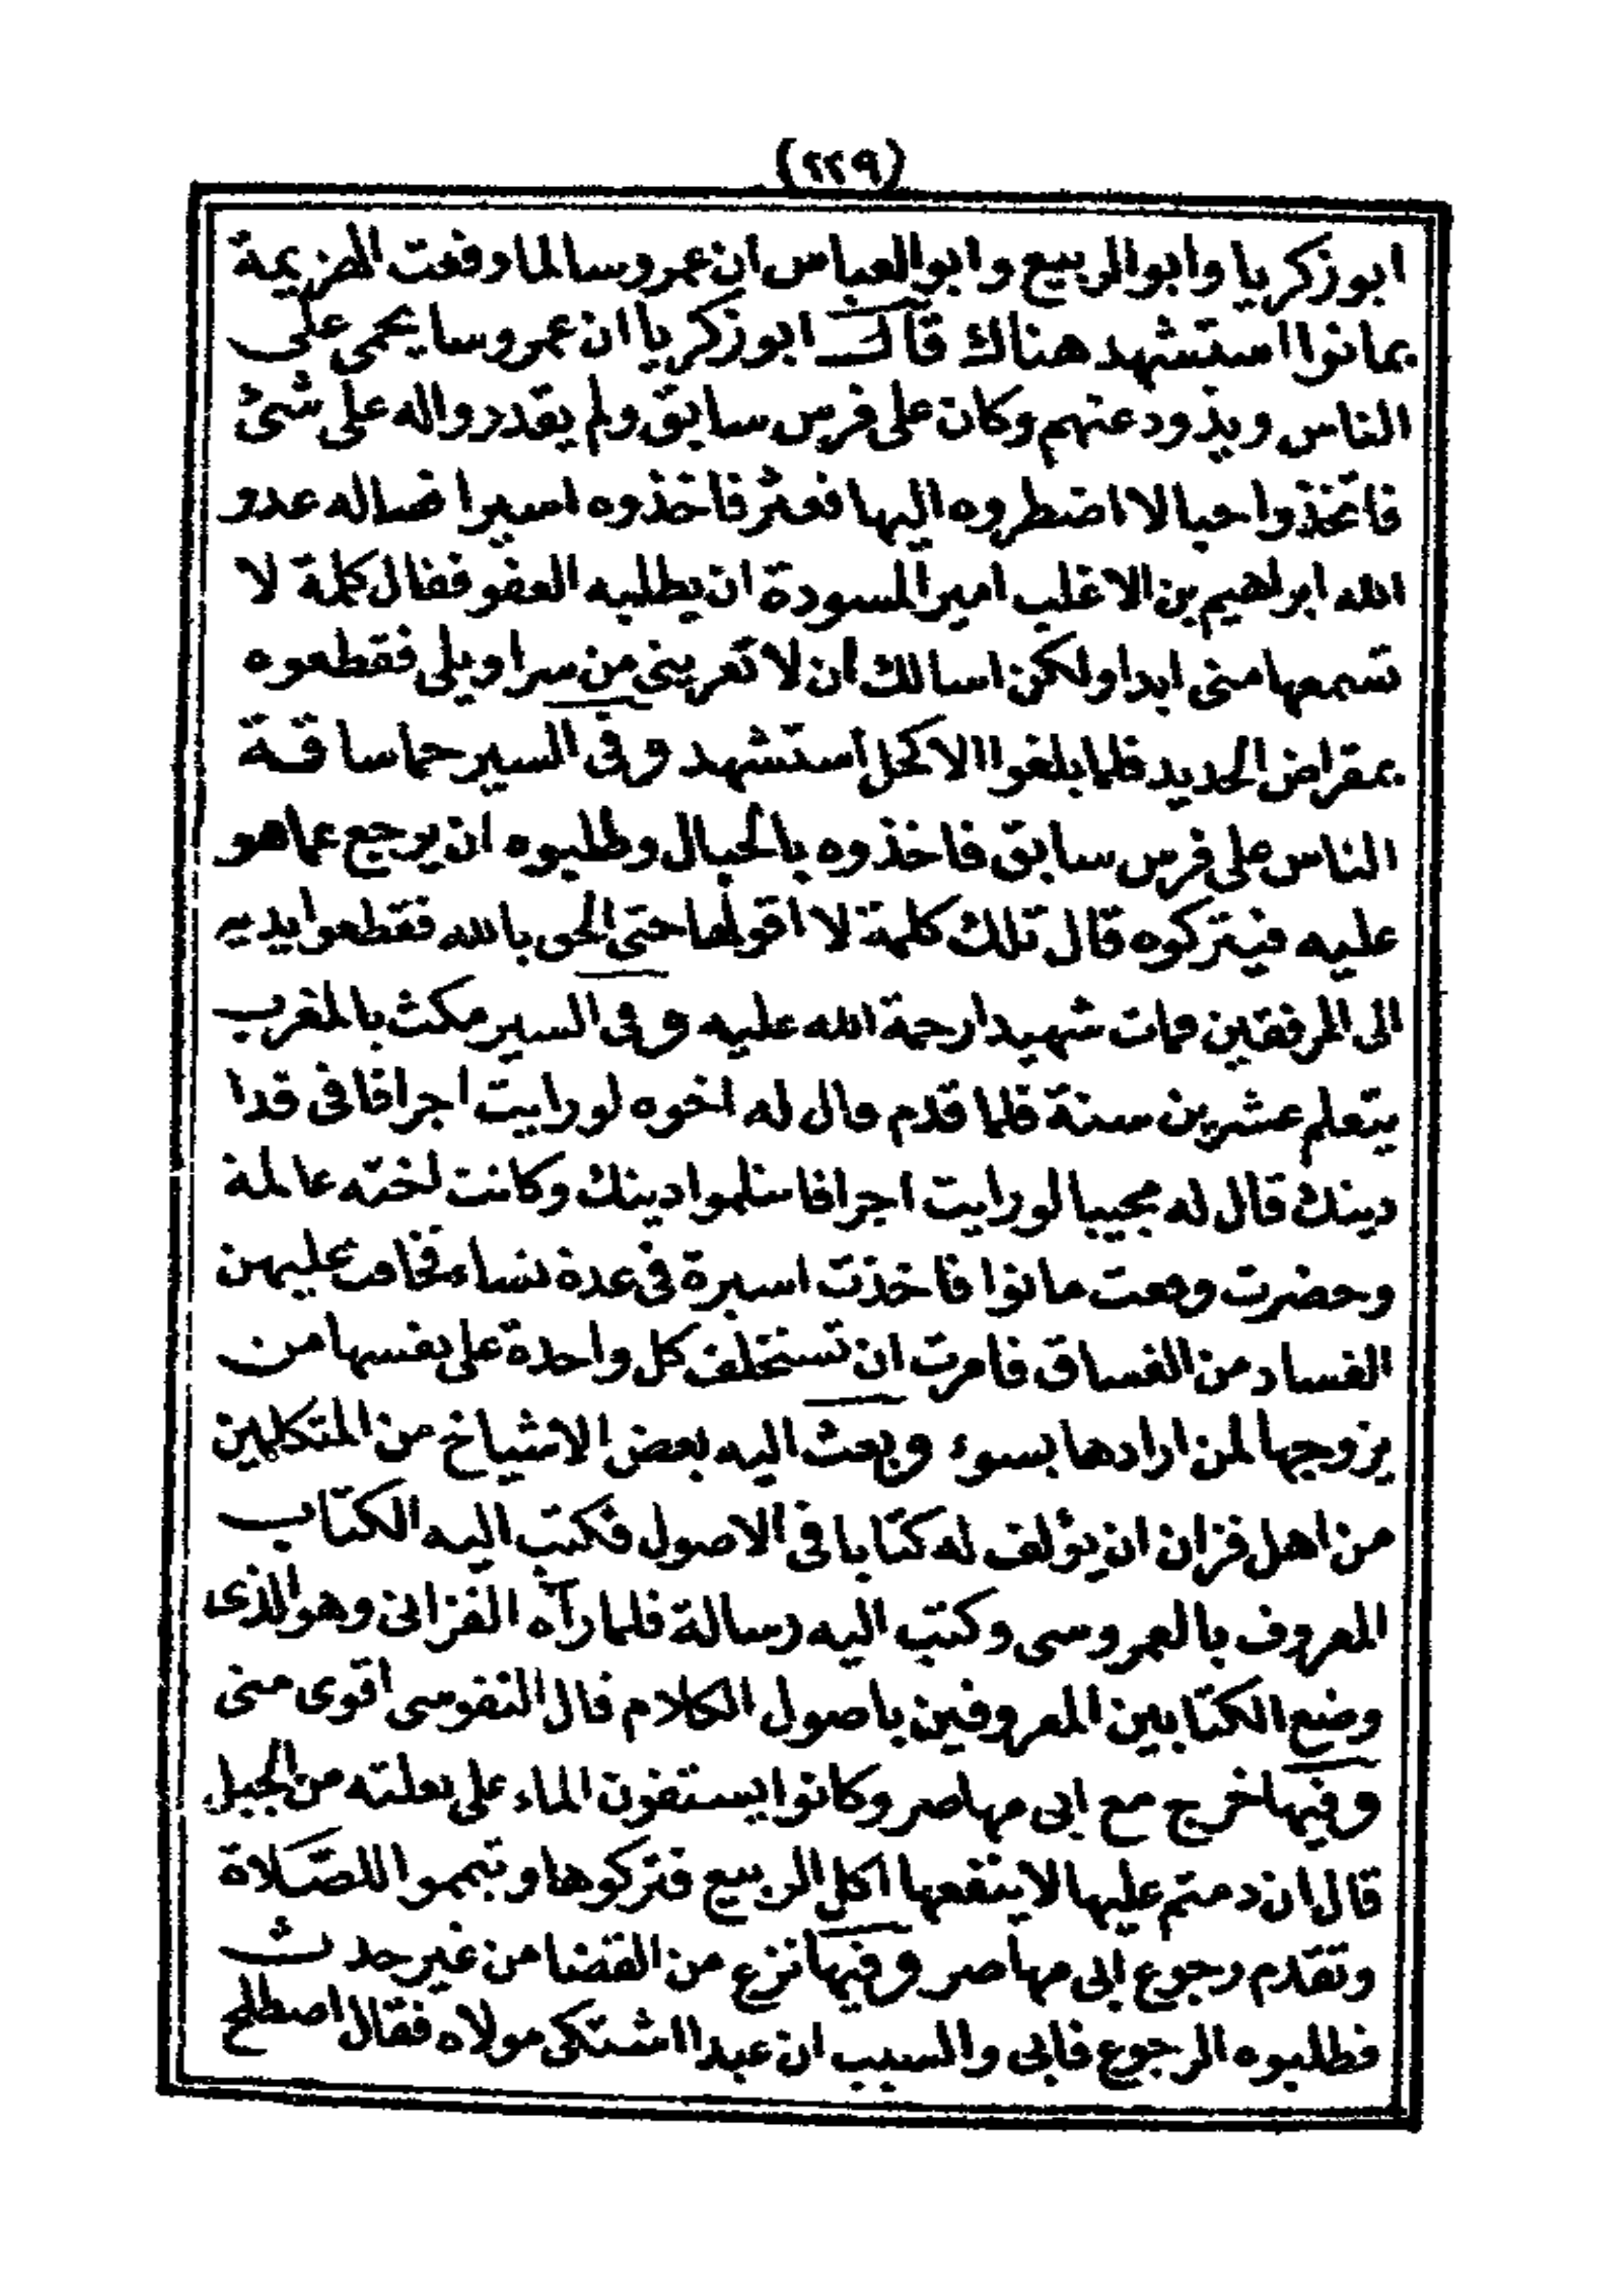 (٢٢٩)
ابو زكريا وابو الربيع وابو العباس ان عمروسا لما وقعت الهزيمة
بمانوا استشهد هناك قال ابو زكريا ان عمروسا يحمى على
الناس ويذود عنهم وكان على فرس سابق ولم يقدروا له على شئ
فاتخذوا حبالا اضطروه اليها فعثر فاخذوه اسيرا فساله عدو
الله ابراهيم بن الاغلب امير المسودة ان يطلبه العفو فقال كلمة لا
تسمعها منى ابدا ولكن اسالك ان لا تعرينى من سراويلى فقطعوه
بمقراض الحديد فلما بلغوا الاكحل استشهد وفى السير حما ساقة
الناس على فرس سابق فاخذوه بالحبال وطلبوه ان يرجع عما هو
عليه فيتركوه قال تلك كلمة لا اقولها حتى الحق بالله فقطعوا يديه
الى المرفقين فمات شهيدا رحمة الله عليه وفى السير مكث بالمغرب
يتعلم عشرين سنة فلما قدم قال له اخوه لو رايت اجرافا فى فدا
دينك قال له مجيبا لو رايت اجرافا دينك وكانت لخته عالمة
وحضرت وقعت مانوا فاخذت اسيرة فى عدة نساء فخافت عليهن
الفساد من الفساق فامرت ان تستخلف كل واحدة على نفسها من
يزوجها لمن ارادها بسوء وبعث اليه بعض الاشياخ من المتكلمين
من اهل فزان ان يؤلف له كتابا فى الاصول فكتب اليه الكتاب
المعروف بالعمروسى وكتب اليه رسالة فلما رآه الفزانى وهو الذى
وضع الكتابين المعروفين باصول الكلام قال النفوسى اقوى منى
وفيها خرج مع ابى مهاصر وكانوا يستقون الماء على بغلته من الجبل
قال ان دمتم عليها لا ينفعها اكل الربيع فتركوها وتيمموا للصلاة
وتقدم رجوع ابى مهاصر وفيها نزع من القضا من غير حدث
فطلبوه الرجوع فابى والسبب ان عبدا اشتكى مولاه فقال اصطلح